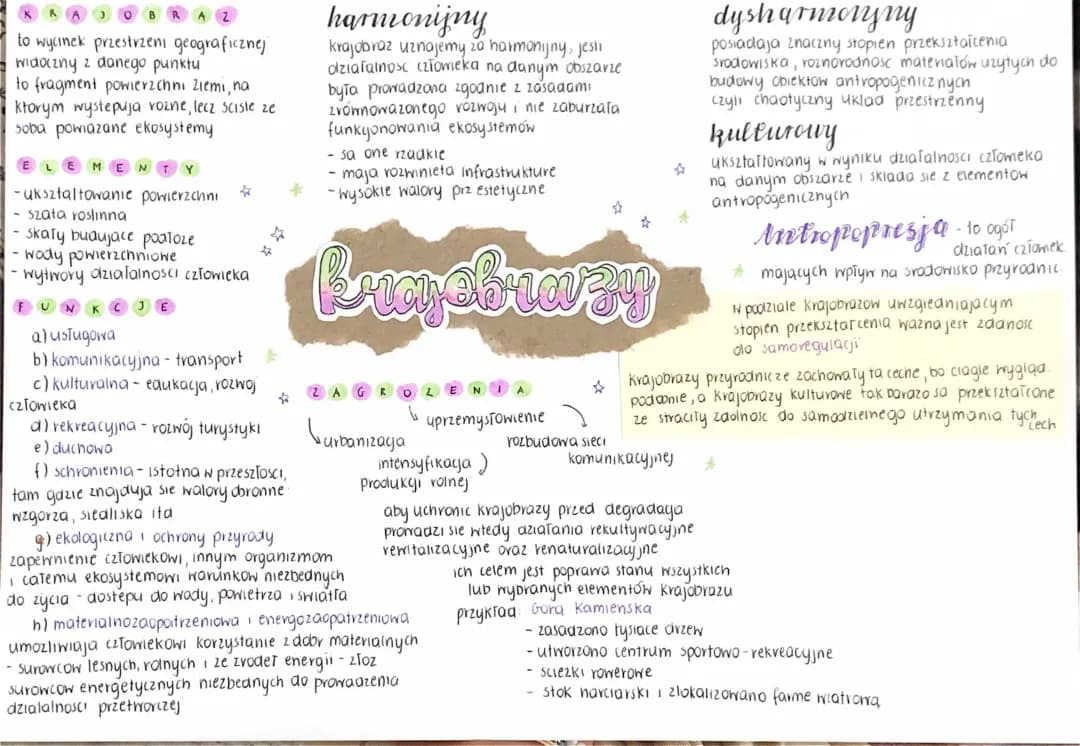 KRAJOBRAZ
to wycinek przestrzeni geograficznej
widoczny z danego punktu
to fragment powierzchni ziemi, na
ktorym wystepują rozne, lecz scisle ze
soba powiazane ekosystemy
ELEMENTY
- ukształtowanie powierzchni
- szata roslinna
- skały budujące podłoże
- wody powierzchniowe
- wytwory działalnosci człowieka
FUNKCJE
a) usługowa
b) komunikacyjna - transport
c) kulturalna - edukacja, rozwoj
człowieka
d) rekreacyjna - rozwój turystyki
e) duchowa
f) schronienia - istotna w przeszłosci,
tam gdzie znajdują sie walory obronne
wzgorza, siedliska itd
g) ekologiczna i ochrony przyrody
zapewnienie człowiekowi, innym organizmom
i całemu ekosystemowi warunkow niezbednych
do zycia - dostepu do wody, powietrza i swiatła
h) materialnozaopatrzeniowa i energozaopatrzeniowa
umozliwiaja człowiekowi korzystanie z dobr materialnych
- surowcow lesnych, rolnych i ze zrodeł energii - złoz
surowcow energetycznych niezbednych do prowadzenia
działalnosci przetworczej
harmonijny
krajobraz uznajemy za harmonijny, jesli
działalnosc człowieka na danym obszarze
była prowadzona zgodnie z zasadami
zrównowazonego rozwoju i nie zaburzała
funkcjonowania ekosystemów
- sa one rzadkie
- maja rozwinieta infrastrukture
- wysokie walory prz estetyczne
krajobrazy
ZAGROZENIA
urbanizacja
uprzemysłowienie
intensyfikacja
produkcji rolnej
rozbudowa sieci
komunikacyjnej
aby uchronic krajobrazy przed degradacja
prowadzi sie wtedy działania rekultywacyjne
rewitalizacyjne oraz renaturalizacyjne
ich celem jest poprawa stanu wszystkich
lub wybranych elementów krajobrazu
przykład: Gora Kamienska
- zasadzono tysiace drzew
- utworzono centrum sportowo-rekreacyjne
- sciezki rowerowe
- stok narciarski i zlokalizowano farme wiatrową
dysharmonijny
posiadaja znaczny stopien przekształcenia
srodowiska, roznorodnosc materiałow uzytych do
budowy obiektow antropogenicznych
czyli chaotyczny układ przestrzenny
kulturowy
ukształtowany w wyniku działalnosci człowieka
na danym obszarze i sklada sie z elementow
antropogenicznych
Antropopresja - to ogół
działan człowiek
mających wpływ na srodowisko przyrodnic
W podziale krajobrazow uwzgledniającym
stopien przekształcenia wazna jest zdolnosc
do samoregulacji
Krajobrazy przyrodnicze zachowały ta ceche, bo ciagle wygląd.
podobnie, a krajobrazy kulturowe tak bardzo sa przekształcone
ze straciły zdolnosc do samodzielnego utrzymania tych
cech